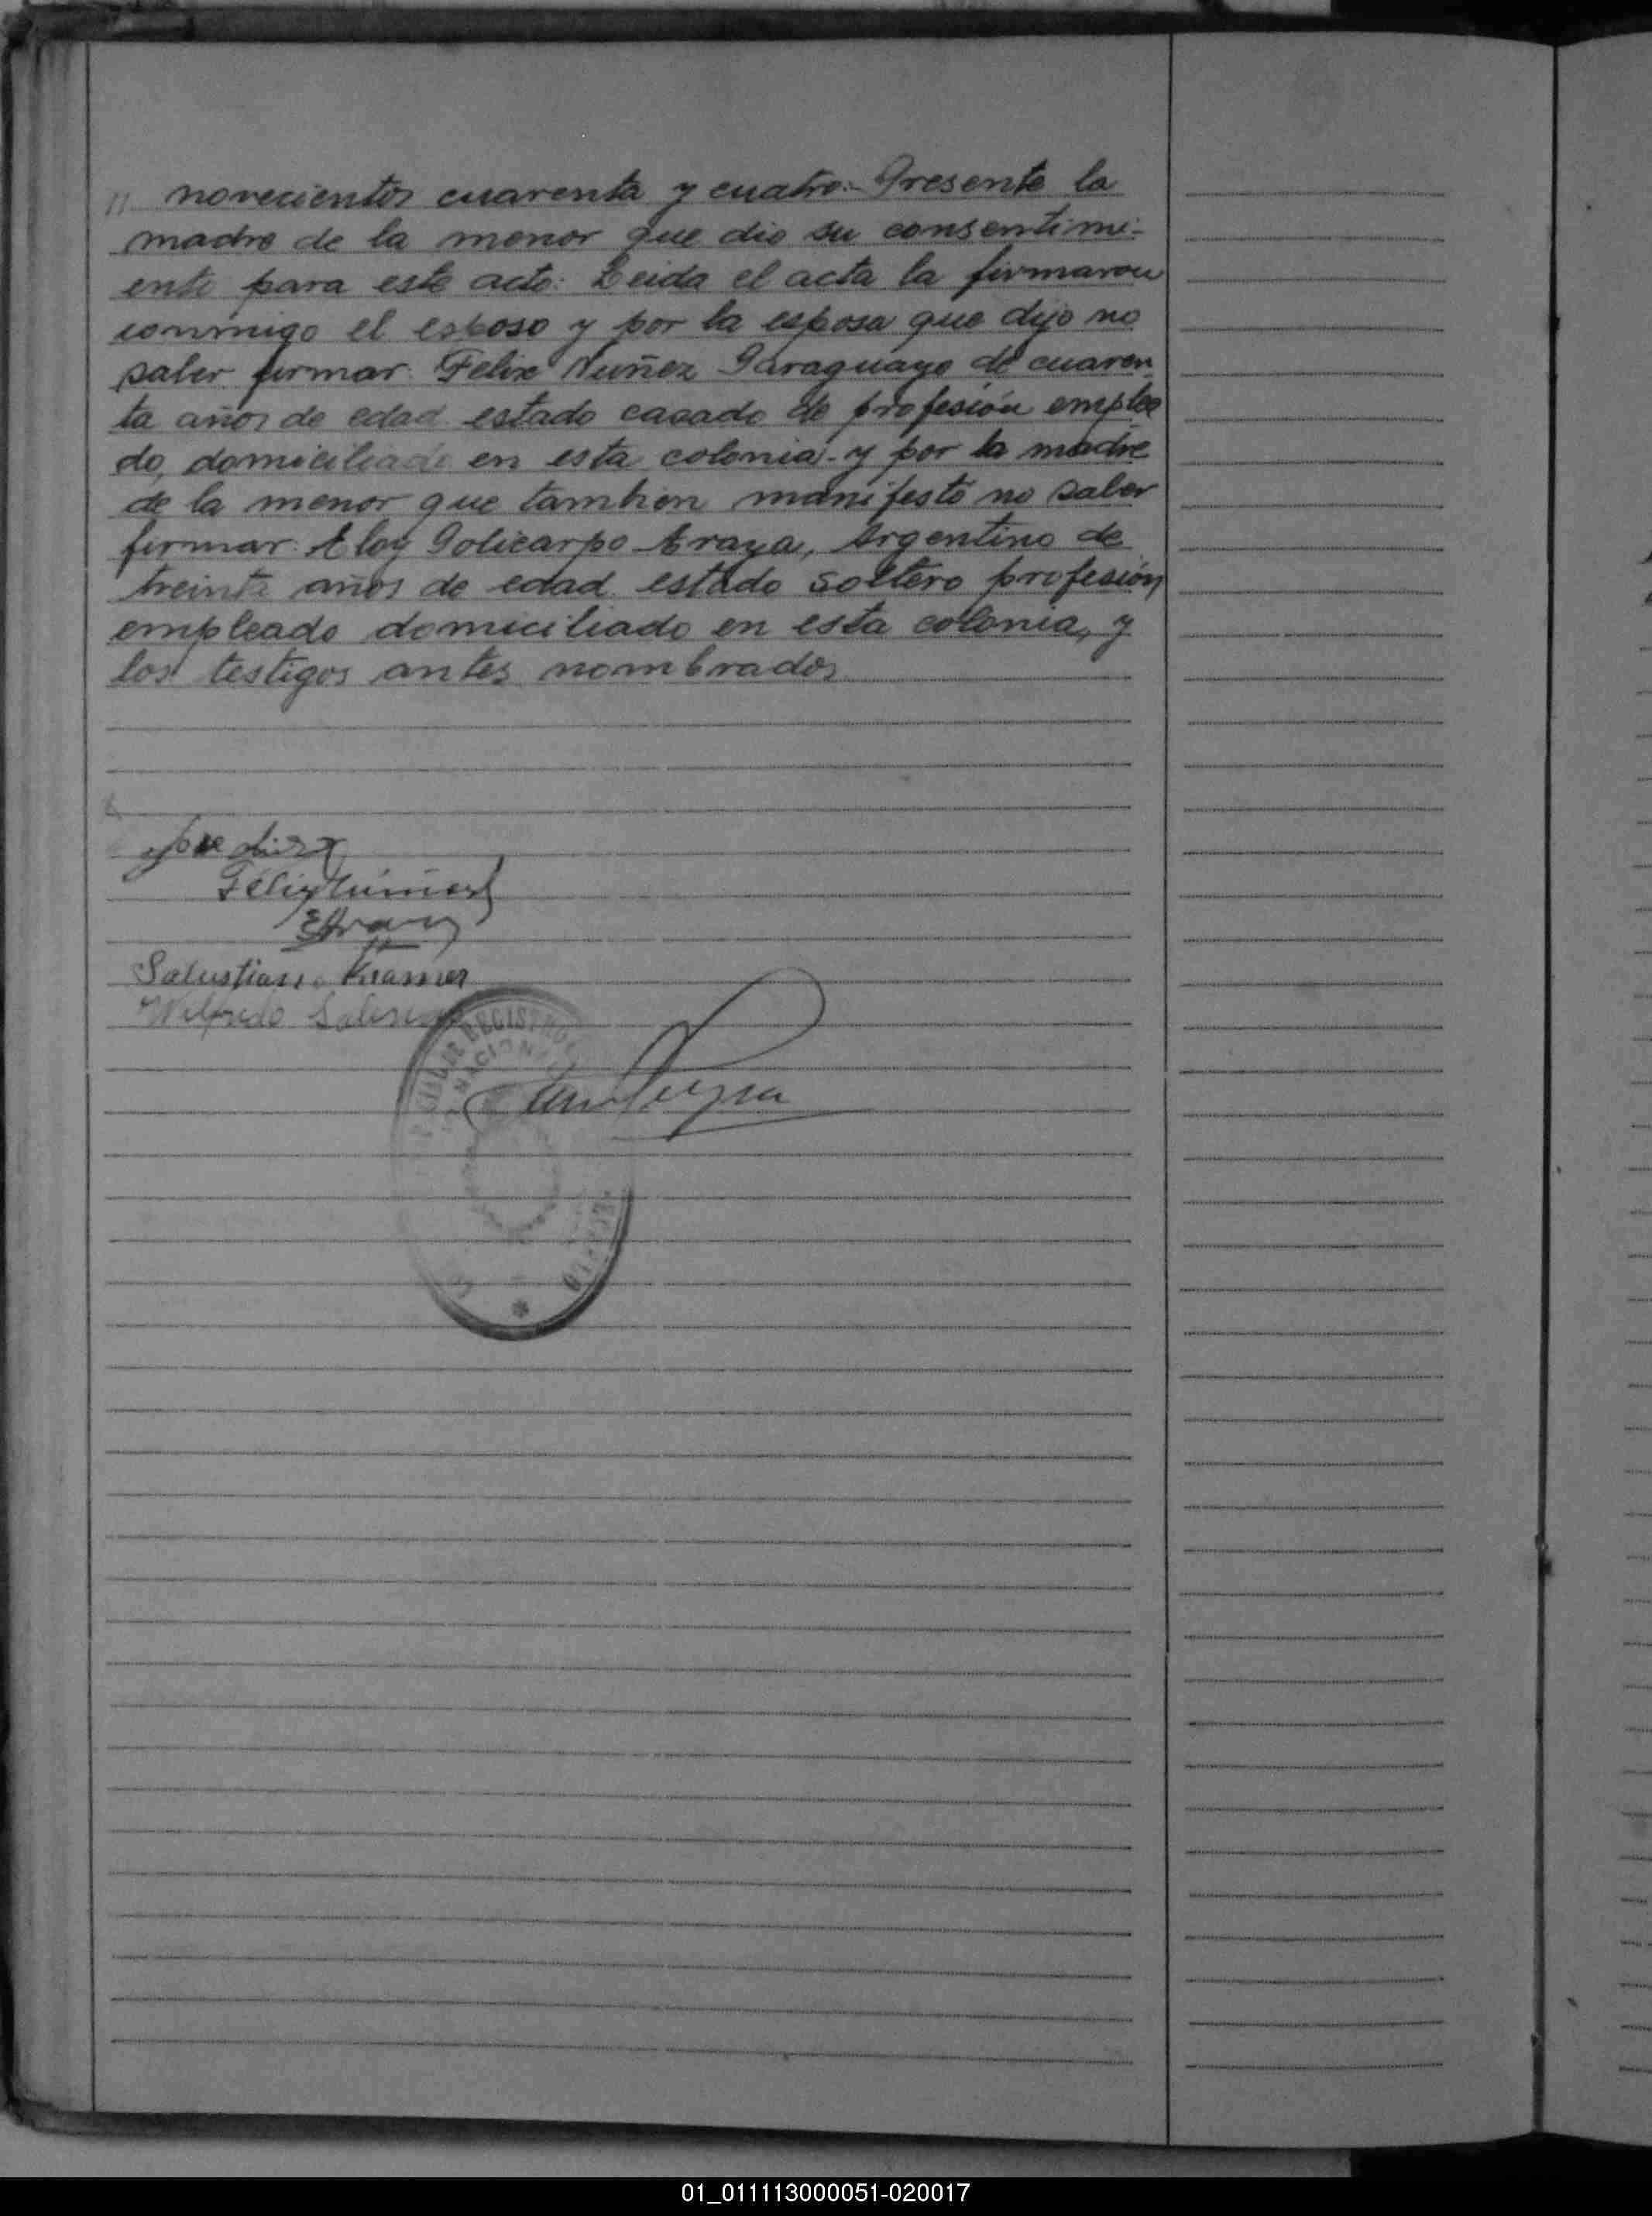 " novecientos cuarenta y cuatro.- Presente la
madre de la menor que dio su consentimi-
ento para este acto. Leida el acta la firmaron
conmigo el esposo y por la esposa que dijo no
saber firmar. Felix Nuñez Paraguayo de cuaren
ta años de edad estado casado de profesión emplea
do, domiciliado en esta colonia - y por la madre
de la menor que tambien manifestó no saber
firmar. Eloy Policarpo Araya, Argentino de
treinta años de edad estado soltero profesión
empleado domiciliado en esta colonia, y
los testigos antes nombrados
Felix Nuñez
Salustiano Kramer
Wilfredo
REGISTRO
NACIONAL
01_011113000051-020017